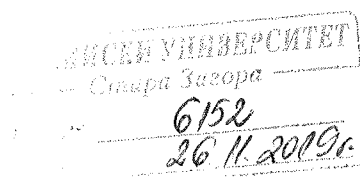 УНИВЕРСИТЕТ
Стара Загора
6152
26 11. 2019г.